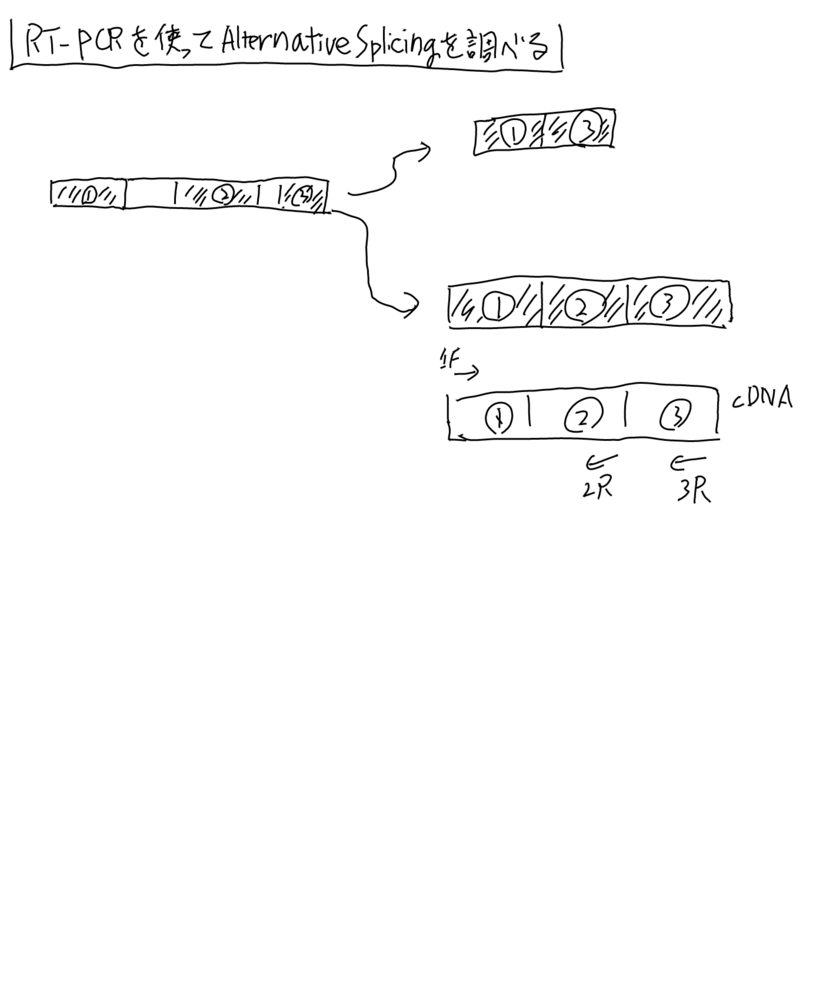 RT-PCRを使ってAlternative Splicingを調べる
① ③
① ② ③
① ② ③
1F
① ② ③ cDNA
2R 3R